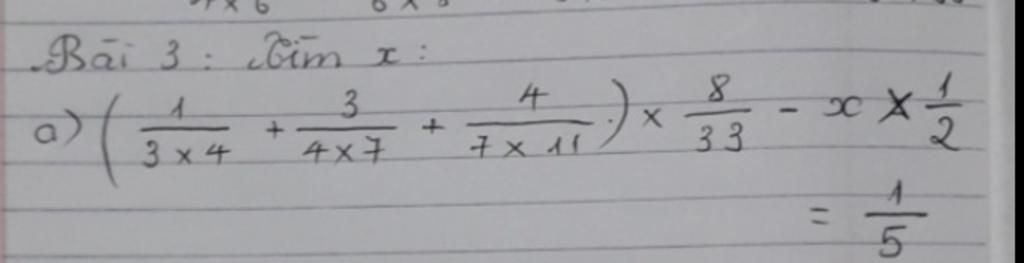 Bài 3 : Tìm x :
a) ( 1/(3 × 4) + 3/(4 × 7) + 4/(7 × 11) ) × 8/33 - x × 1/2
= 1/5